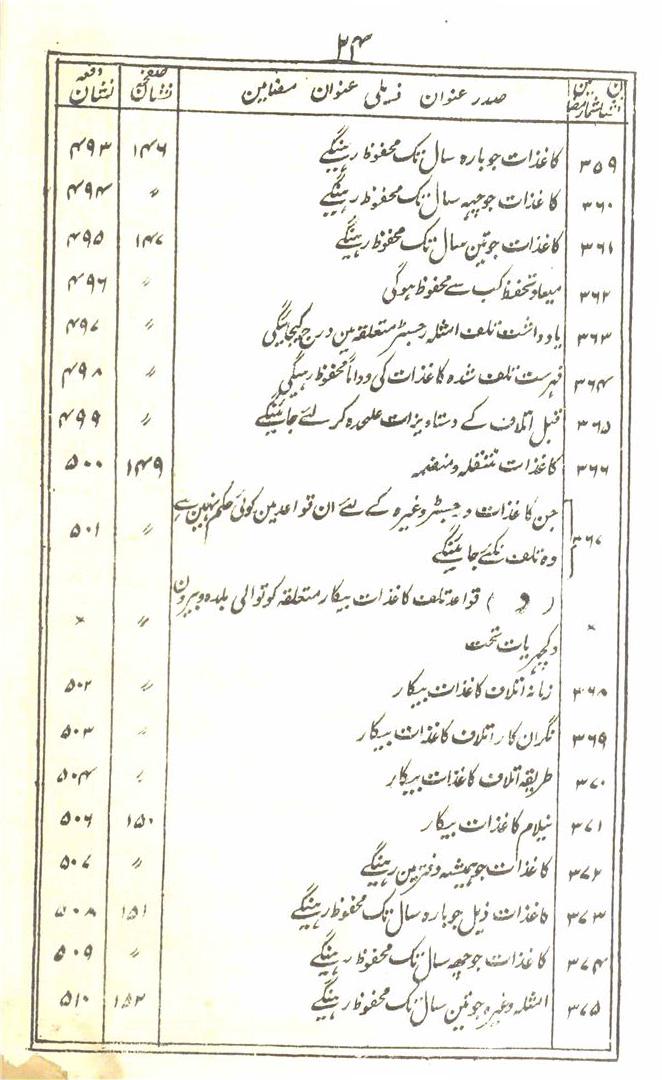 ۲۴
نشان شمار مضامین صدر عنوان ذیلی عنوان مضامین نشان صفحہ نشان دفعہ
۳۵۹ کاغذات جو بارہ سال تک محفوظ رہینگے ۱۴۶ ۴۹۳
۳۶۰ کاغذات جو چہہ سال تک محفوظ رہینگے 〃 ۴۹۴
۳۶۱ کاغذات جو تین سال تک محفوظ رہینگے ۱۴۷ ۴۹۵
۳۶۲ میعاد تحفظ کب سے محفوظ ہوگی 〃 ۴۹۶
۳۶۳ یادداشت تلف امثلہ رجسٹر متعلقہ مین درج کیجائیگی 〃 ۴۹۷
۳۶۴ فہرست تلف شدہ کاغذات کی دواماً محفوظ رہیگی 〃 ۴۹۸
۳۶۵ قبل اتلاف کے دستاویزات علحدہ کر لئے جائینگے 〃 ۴۹۹
۳۶۶ کاغذات منتقلہ و منضمہ ۱۴۹ ۵۰۰
۳۶۷ جن کاغذات و رجسٹر وغیرہ کے لئے ان قواعد مین کوئی حکم نہین ہے 〃 ۵۰۱
وہ تلف نکئے جائینگے
× ( و ) قواعد تلف کاغذات بیکار متعلقہ کوتوالی بلدہ و بیرون 〃 ×
و کچہریات تحت
۳۶۸ زمانہ اتلاف کاغذات بیکار 〃 ۵۰۲
۳۶۹ نگران کار اتلاف کاغذات بیکار 〃 ۵۰۳
۳۷۰ طریقہ اتلاف کاغذات بیکار 〃 ۵۰۴
۳۷۱ نیلام کاغذات بیکار ۱۵۰ ۵۰۶
۳۷۲ کاغذات جو ہمیشہ دفتر مین رہینگے 〃 ۵۰۷
۳۷۳ کاغذات ذیل جو بارہ سال تک محفوظ رہینگے ۱۵۱ ۵۰۸
۳۷۴ کاغذات جو چھہ سال تک محفوظ رہینگے 〃 ۵۰۹
۳۷۵ امثلہ وغیرہ جو تین سال تک محفوظ رہینگے ۱۵۲ ۵۱۰